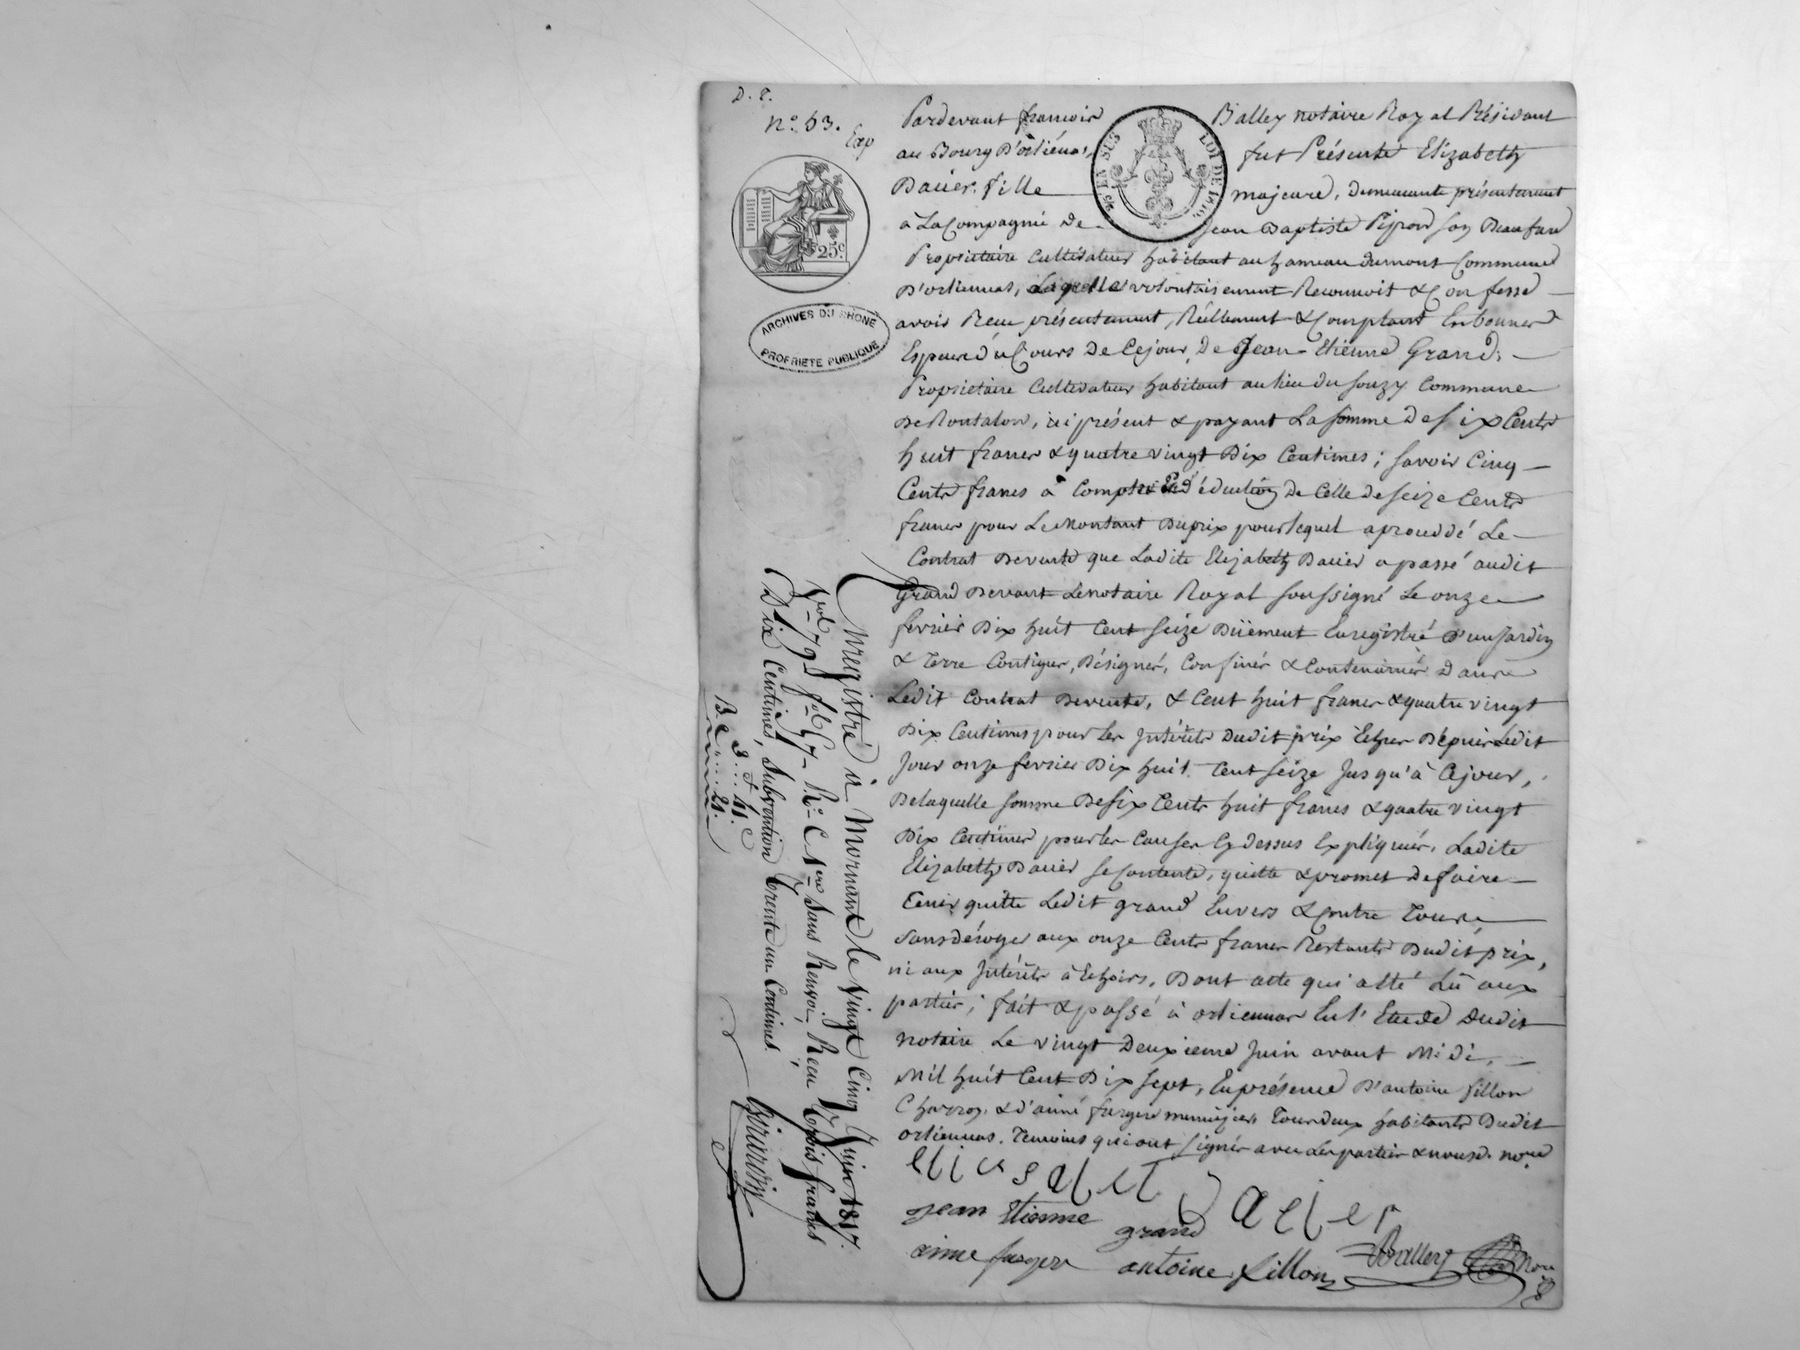 D. P.
N.º 53.
Exp
25.c
ARCHIVES DU RHÔNE
PROPRIÉTÉ PUBLIQUE
EN SUS
LOI DE 1816
Pardevant françois Balley notaire Royal Résidant
au Bourg D'orliénas, fut Présente Elizabeth
Davier fille majeure, demeurante présentement
à La Compagnie de Jean Baptiste Pijron son Beaufrere
Propriétaire Cultivateur habitant au hameau dumont Commune
D'orliennas, Laquelle volontairement Reconnoit & Confesse
avoir Recu présentement, Réellement & Comptant En bonnes
Espèces du Cours de Cejour, De Jean-Etienne Grand,
Propriétaire Cultivateur habitant au lieu du Souzy Commune
de Rontalon, ici présent & payant La somme de six Cents
huit francs & quatre vingt Dix Centimes; savoir Cinq
Cents francs à Compte & déduction de Celle de seize Cents
francs pour Le Montant Duprix pour lequel a procédé Le
Contrat de vente que Ladite Elizabeth Davier a passé audit
Grand Devant Le notaire Royal soussigné Le onze
fevrier Dix huit Cent seize Düement Enregistré d'un Jardin
& Terre Contigues, Désignés, Confinés & Contenancés dans
Ledit Contrat de vente, & Cent huit francs & quatre vingt
Dix Centimes pour Les Intérêts Dudit prix Echus Dépuis Ledit
Jour onze fevrier Dix huit Cent seize Jusqu'à Cejour,
De laquelle somme De six Cents huit francs & quatre vingt
Dix Centimes pour les Causes Cy dessus Expliquées, Ladite
Elizabeth Davier se Contente, quitte & promet de faire
Tenir quitte Ledit grand Envers & Contre Tous,
sans déroger aux onze Cents francs Restants Dudit prix,
ni aux Intérêts à Echoirs. Dont acte qui a été Lû aux
parties; fait & passé à orliennas En l'Etude Dudit
notaire Le vingt Deuxieme Juin avant Midi,
Mil huit Cent Dix sept, En présence D'antoine fillon
Charron, & d'aimé furgere menuisier Tous deux habitants Dudit
orliennas. Temoins qui ont signés avec Les parties & nous d. no.re
elicsabet Davier
jean Etienne grand
aime furgere antoine fillon Balley Nore
Enregistré à Mornant le vingt Cinq Juin 1817.
Vol 79 fol 67 R.º C 1ere Sans Renvoi, Recu Trois francs
Dix Centimes, Subvention Trente un Centimes.
3.f 41.c